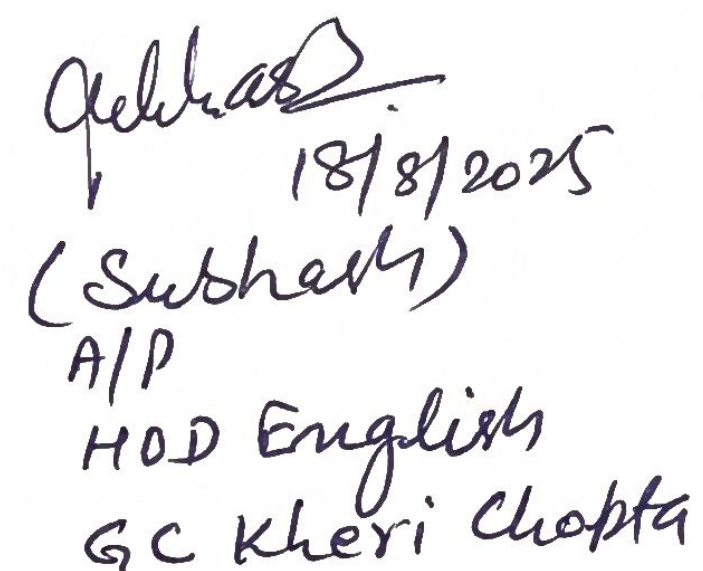 18/8/2025
(Subhash)
A/P
HOD English
GC Kheri Chopta